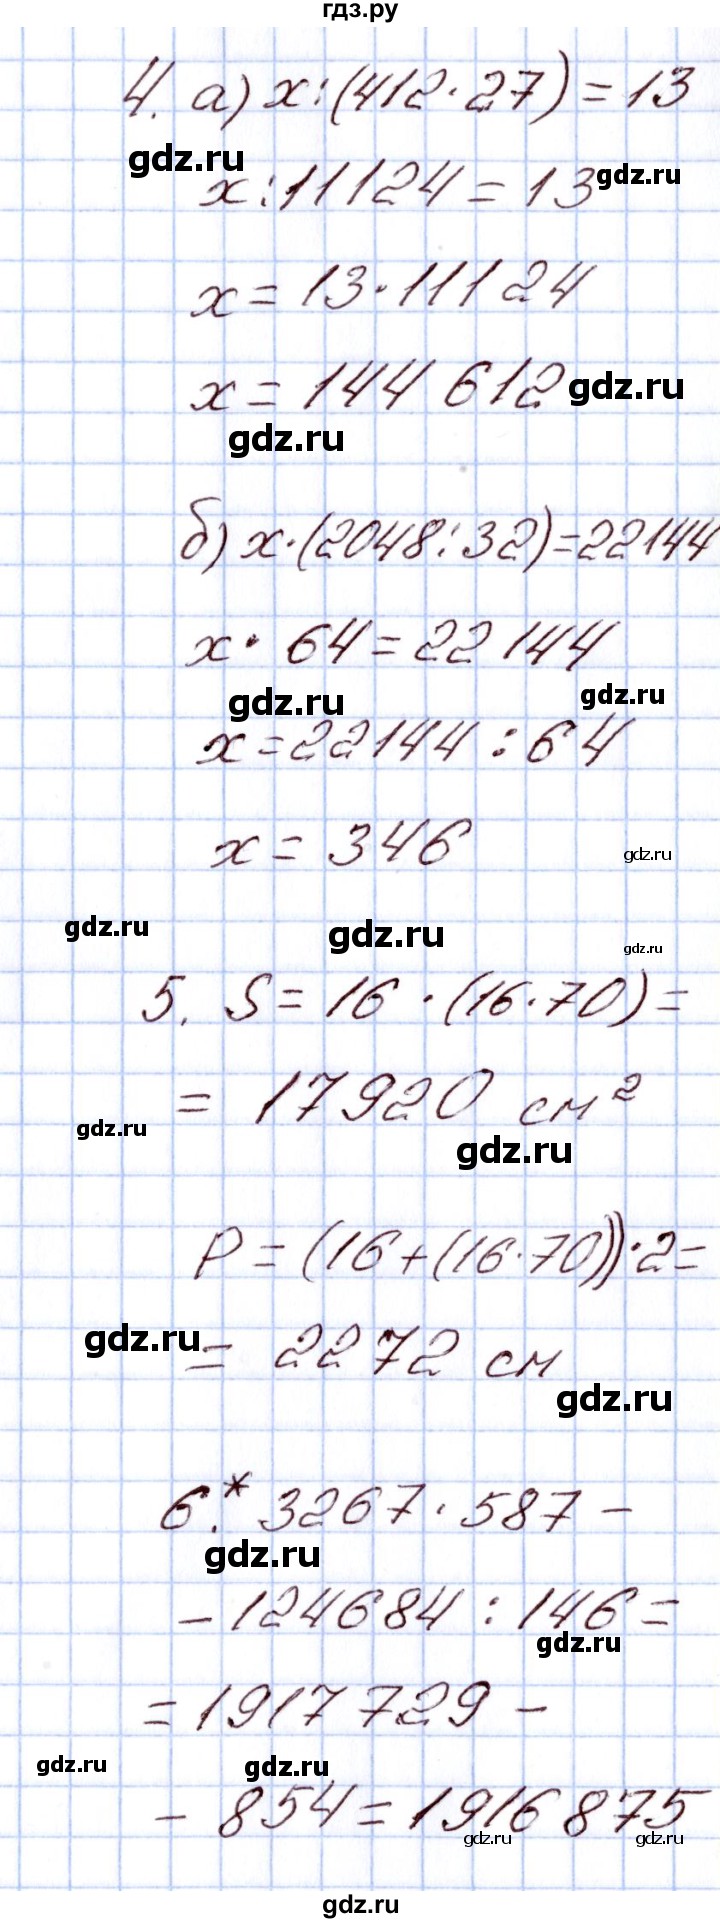 гдз.ру
4. а) x:(412·27)=13
gdz.ru
x:11124=13
gdz.ru
x=13·11124
x=144 612
gdz.ru
gdz.ru
б) x·(2048:32)=22144
x·64=22 144
gdz.ru
gdz.ru
x=22144:64
x=346
gdz.ru
gdz.ru
gdz.ru
gdz.ru
5. S=16·(16·70)=
=17920 см²
gdz.ru
gdz.ru
P=(16+(16·70))·2=
gdz.ru
=2272 см
gdz.ru
6.* 3267·587-
gdz.ru
-124684:146=
gdz.ru
=1917 729-
gdz.ru
gdz.ru
-854=1916 875
gdz.ru
gdz.ru
gdz.ru